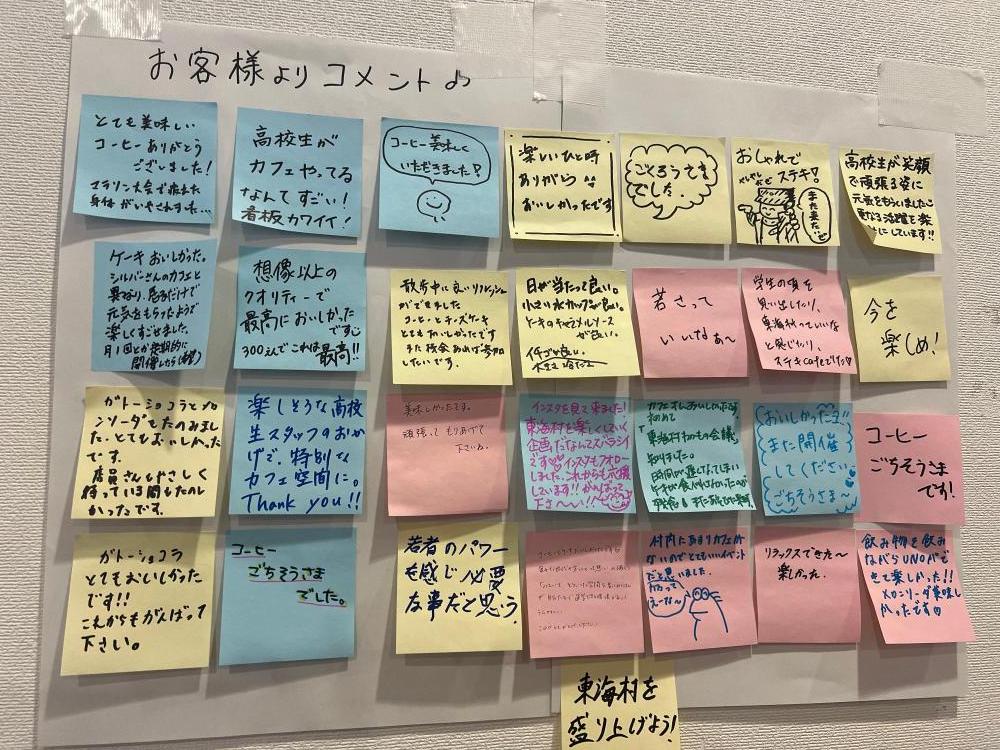 お客様よりコメント♪
とても美味しい
コーヒーありがとう
ございました!
マラソン大会で疲れた
身体がいやされました…
高校生が
カフェやってる
なんてすごい!
看板カワイイ!
コーヒー美味しく
いただきました!
楽しいひと時
ありがとう
おいしかったです
ごくろうさま
でした。
おしゃれで
ステキ!
また来た
高校生が笑顔
で頑張る姿に
元気をもらいました
更なる活躍を楽
しみにしています!!
ケーキおいしかった。
シルバーさんのカフェと
異なり、居るだけで
元気をもらったようで
楽しくすごせました。
月1回とか定期的に
開催したら
想像以上の
クオリティーで
最高においしかった
です
300えんでこれは最高!!
散歩中に良いリフレッシュ
ができました
コーヒーとチーズケーキ
とてもおいしかったです
また機会あれば参加
したいです。
日が当たって良い。
小さい水カップが良い。
ケーキのキャラメルソース
が良い。
若さって
いいなぁ〜
学生の頃を
思い出したり、
東海村っていいな
と感じたり、
ステキcafeでした♡
今を
楽しめ!
ガトーショコラとメロ
ンソーダをたのみまし
た。とてもおいしかった
です。
店員さんがやさしく
待っている間もたのし
かったです。
楽しそうな高校
生スタッフのおか
げで、特別な
カフェ空間に。
Thank you!!
美味しかったです。
頑張ってもりあげて
下さいね。
インスタを見て来ました!
東海村を楽しくしていく
企画だなんてスバラシイ
です♡♡インスタもフォロー
しました。これからも応援
しています!!がんばって
下さ〜い!!
「東海村
知りました。
時間が
おいしかったヨ
また開催
してください
ごちそうさま〜
コーヒー
ごちそうさま
です!
ガトーショコラ
とてもおいしかった
です!!
これからもがんばって
下さい。
コーヒー
ごちそうさま
でした。
若者のパワー
を感じ必要
な事だと思う。
村内にあまりカフェが
ないのでとてもいいイベント
だと思いました。
リラックスできた〜
楽しかった.
飲み物を飲み
ながらUNOがで
きて楽しかった!!
メロンソーダ美味し
かったです♡
東海村を
盛り上げよう!